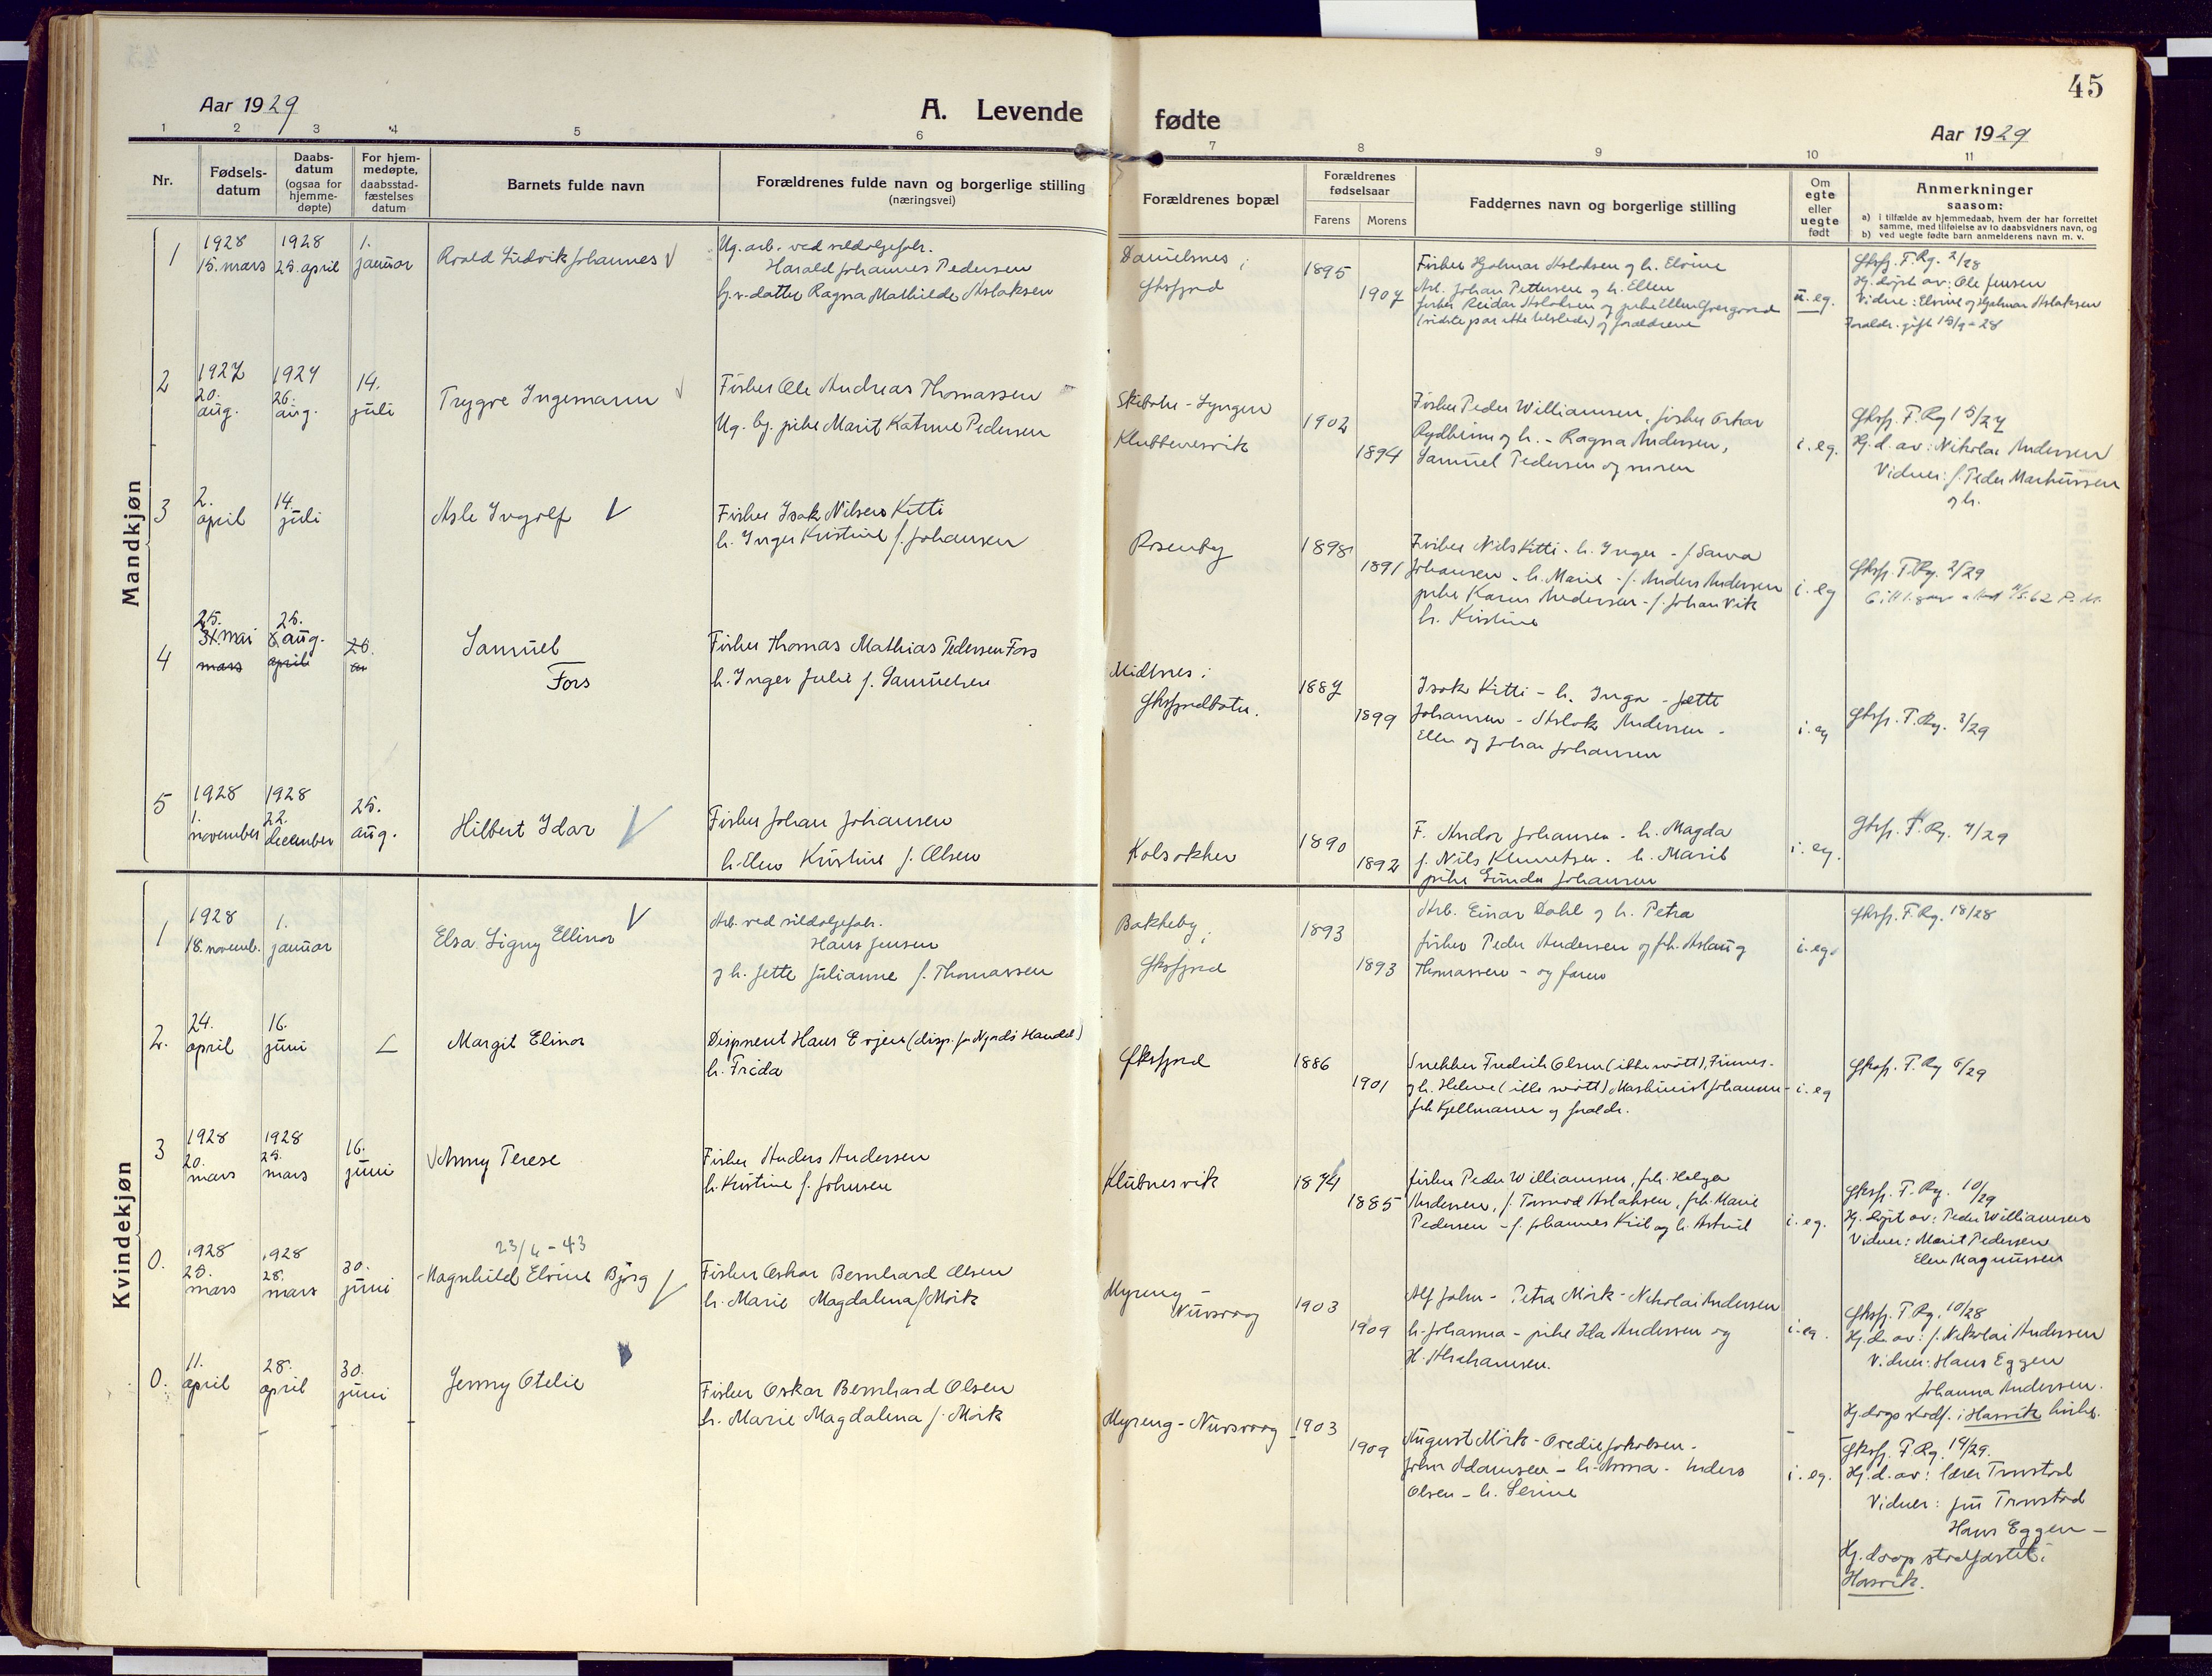 45
Aar 1929
A. Levende fødte
Aar 1929
1 2 3 4 5 6 7 8 9 10 11
Nr.
Fødsels-
datum
Daabs-
datum
(ogsaa for
hjemme-
døpte)
For hjem-
medøpte,
daabsstad-
fæstelses
datum
Barnets fulde navn
Forældrenes fulde navn og borgerlige stilling
(næringsvei)
Forældrenes bopæl
Forældrenes
fødselsaar
Farens Morens
Faddernes navn og borgerlige stilling
Om
egte
eller
uegte
født
Anmerkninger
saasom:
a) i tilfælde av hjemmedaab, hvem der har forrettet
samme, med tilføielse av to daabsvidners navn, og
b) ved uegte fødte barn anmelderens navn m. v.
Mandkjøn
1
1928
15. mars
1928
25. april
1.
januar
Roald Ludvik Johannes
Ug. arb. ved sildoljefabr.
Harald Johannes Pedersen
og h. datter Ragna Mathilde Aslaksen
Danielsnes,
Øksfjord
1895
1907
Fisker Hjalmar Aslaksen og h. Elvine
Arb. Johan Pettersen og h. Ellen
fisker Reidar Aslaksen og pike Ellen
(sidste par ikke tilstede) og forældrene
u. eg.
Øksfj. F. Rg. 2/28
Hj. døpt av: Ole Jensen
Vidne: Elvine og Hjalmar Aslaksen
Foreldr. gift 15/9-28
2
1927
20.
aug.
1927
26.
aug.
14.
juli
Trygve Ingemann
Fisker Ole Andreas Thomassen
Ug. pike Marit Katrine Pedersen
Skibotn - Lyngen
Klubbenesvik
1902
1894
Fisker Peder Williamsen, fisker Oskar
Rydheim og h. - Ragna Andersen,
Samuel Pedersen og moren
i. eg.
Øksfj. F. Rg 15/27
Hj. d. av: Nikolai Andersen
Vidner: f. Peder Markussen
og h.
3
2.
april
14.
juli
Asle Ingolf
Fisker Isak Nilsen Kitti
h. Inger Kristine f. Johansen
Rosenby
1898
1891
Fisker Nils Kitti - h. Inger - f. Sawa
Johansen - h. Marie - f. Anders Andersen
pike Karen Andersen - f. Johan Vik
h. Kristine
i. eg
Øksfj. F. Rg. 2/29
4
25.
31. mai
mars
25.
aug.
april
26.
Samuel
Fors
Fisker Thomas Mathias Pedersen Fors
h. Inger Julie f. Samuelsen
Midtnes i
Øksfjordbotn.
1887
1899
Isak Kitti - h. Inga - Jette
Johansen - Aslak Andersen -
Ellen og Johan Johansen
i. eg
Øksfj. F. Rg. 3/29
5
1928
1.
november
1928
22.
december
25.
aug.
Hilbert Idar
Fisker Johan Johansen
h. Elen Kristine f. Olsen
Kolsokken
1890
1892
F. Andor Johansen - h. Magda
f. Nils Klemetsen. h. Marit
pike Gunda Johansen
i. eg.
Øksfj. F. Rg. 4/29
Kvindekjøn
1
1928
18. novemb.
1.
januar
Elsa Signy Ellinor
Arb. ved sildoljefabr.
Hans Jensen
og h. Jette Julianne f. Thomassen
Bakkeby,
Øksfjord
1893
1893
Arb. Einar Dahl og h. Petra
fisker Peder Andersen og frk. Aslaug
Thomassen - og faren
i. eg.
Øksfj. F. Rg. 18/28
2.
24.
april
16.
juni
Margit Elinor
Disponent Hans Evjen (disp. for Nysrds Handel)
h. Frida
Øksfjord
1886
1901
Snekker Fredrik Olsen (ikke møtt), Finnes-
og h. Helene (ikke møtt) Maskinist Johansen -
frk Kjellmann og foreldr.
i. eg
Øksfj. F. Rg 6/29
3
1928
20.
mars
1928
25.
mars
16.
juni
Anny Terese
Fisker Anders Andersen
h. Kristine f. Johnsen
Klubnesvik
1874
1885
fisker Peder Williamsen, frk. Helga
Andersen, f. Tormod Aslaksen, frk. Marie
Pedersen - f. Johannes Kiil og h. Astrid
i. eg.
Øksfj. F. Rg. 10/29
Hj. døpt av: Peder Williamsen
Vidner: Marit Pedersen
Elen Magnussen
0.
1928
25.
mars
1928
28.
mars
30.
juni
23/4-43
Magnhild Elvine Bjørg
Fisker Oskar Bernhard Olsen
h. Marie Magdalena f. Mörk
Myreng -
Nuvsvaag
1903
1909
Alf John - Petra Mörk - Nikolai Andersen
h. Johanna - pike Ida Andersen og
H. Abrahamsen.
i. eg.
Øksfj. F Rg. 10/28
Hj. d. av: f. Nikolai Andersen
Vidner: Hans Eggen
Johanna Andersen.
Hj. daap stadf. i Hasvik kirke.
0.
11.
april
28.
april
30.
juni
Jenny Otelie
Fisker Oskar Bernhard Olsen
h. Marie Magdalena f. Mörk
Myreng - Nuvsvaag
1903
1909
August Mörk - Ovedie Jakobsen -
John Adamsen - h. Anna - Anders
Olsen - h. Serine
i. eg.
Øksfj. F Rg. 14/29.
Hj. d. av: lærer Trnstad
Vidner: fru Trnstad
Hans Eggen -
Hj. daap stadfæstet i
Hasvik.